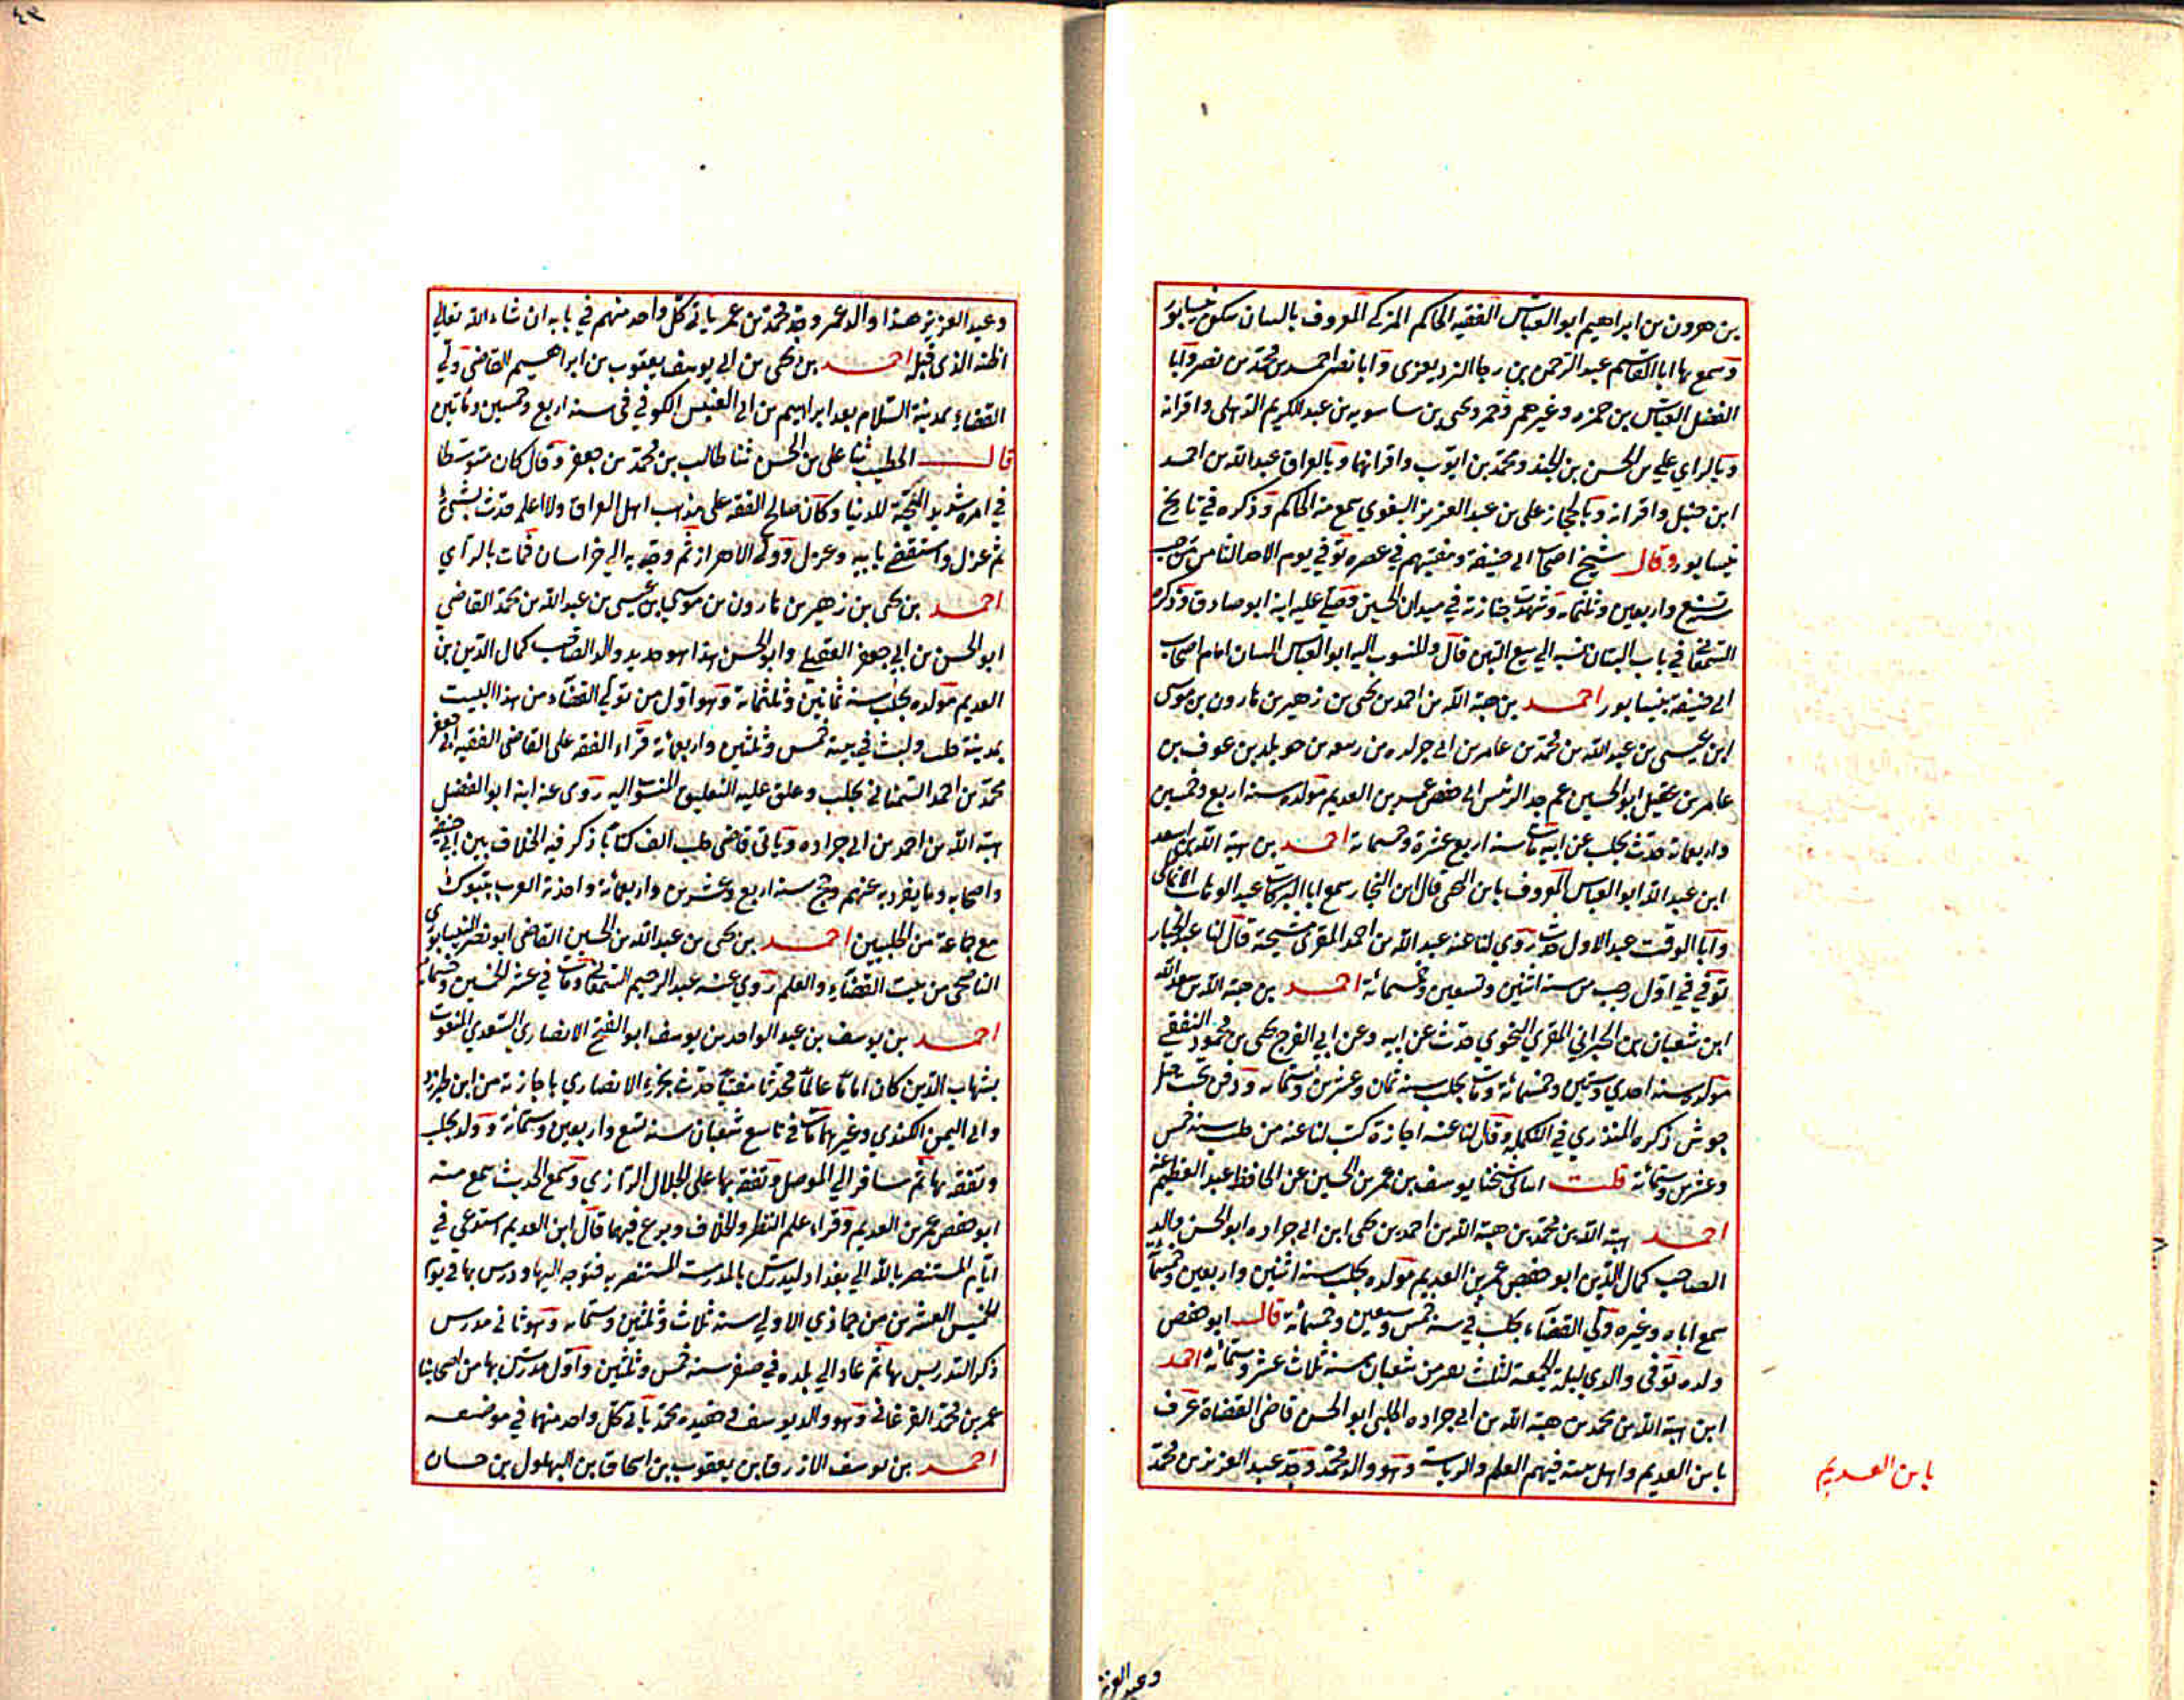 بن هرون بن ابراهيم ابو العباس الفقيه الحاكم المزكى المعروف بالتبان سكن نيسابور
وسمع بها ابا القاسم عبد الرحمن بن رجا البزديغزى وابا نصر احمد بن محمد بن نصر وابا
الفضل العباس بن حمزه وغيرهم ويحيى بن ساسويه بن عبد الكريم الذهلى واقرانه
وبالراي علي بن الحسن بن الجنيد ومحمد بن ايوب واقرانهما وبالعراق عبد الله بن احمد
ابن حنبل واقرانه وبالحجاز على بن عبد العزيز البغوي سمع منه الحاكم وذكره في تاريخ
نيسابور وقال شيخ اصحاب ابى حنيفة ومفتيهم في عصره توفي يوم الاحد الثامن من رجب
تسع واربعين وثلثمايه وشهدت جنازته في ميدان الحسين وصلى عليه ابنه ابو صادق وذكره
السمعاني في باب التبان نسبه الى بيع التبن قال والمنسوب اليه ابو العباس التبان امام اصحاب
ابى حنيفة بنيسابور احمد بن هبة الله بن احمد بن يحيى بن زهير بن هارون بن موسى
ابن عيسى بن عبد الله بن محمد بن عامر بن ابى جراده بن ربيعه بن خويلد بن عوف بن
عامر بن عقيل ابو الحسين عم جد الرئيس ابى حفص عمر بن العديم مولده سنه اربع وخمسين
واربعمائة حدث بحلب عن ابيه مات سنة اربع عشرة وخمسمائة احمد بن هبة الله بن اسعد
ابن عبد الله ابو العباس المعروف بابن قال ابن النجار سمع ابا البركات عبد الوهاب الانماطى
وابا الوقت عبد الاول وحدث روي لنا عنه عبد الله بن احمد المقرى في مشيخته قال لنا عبد الجبار
توفي في اول رجب من سنة اثنين وتسعين وخمسمائة احمد بن هبة الله بن سعد الله
ابن شعبان بن الحيراني المقري النحوي حدث عن ابيه وعن ابي الفرج يحيى بن محمود الثقفي
مولده سنة احدي وستين وخمسمائة ومات بحلب سنة ثمان وعشرين وستمايه ودفن تحت جبل
جوشن ذكره المنذري في التكمله وقال لنا عنه اجازة كتب لنا عنه من حلب سنة خمس
وعشرين وستمائة قلت انبائى شيخنا يوسف بن عمر بن الحسين عن الحافظ عبد العظيم عنه
احمد هبة الله بن محمد بن هبة الله بن احمد بن يحيى ابن ابى جراده ابو الحسن والد
الصاحب كمال الدين ابو حفص عمر بن العديم مولده بحلب سنة اثنين واربعين وخمسمائة
سمع اباه وغيره وولي القضاء بحلب في سنة خمس وسبعين وخمسمائة قال ابو حفص
ولده توفى والدي ليلة الجمعة لثلث بقين من شعبان سنة ثلاث عشر وستمائة احمد
ابن هبة الله بن محمد بن هبة الله بن ابى جراده الحلبى ابو الحسن قاضى القضاة عرف
بابن العديم واهل بيته فيهم العلم والرياسة وهو والد محمد وجد عبد العزيز بن محمد
بابن العديم
وعبد العزيز
٤٣
وعبد العزيز هذا والد عمر وجد محمد بن عمر ياتى كل واحد منهم في بابه ان شاء الله تعالى
اظنه الذى قبله احمد بن يحيى بن ابى يوسف يعقوب بن ابراهيم القاضى ولي
القضاء بمدينة السلام بعد ابراهيم بن ابى العنبس الكوفي فى سنة اربع وخمسين ومائتين
قال الخطيب ثنا على بن الحسن ثنا طالب بن محمد بن جعفر وقال كان متوسطا
في امره شديد المحبة للدنيا وكان صالح الفقه على مذهب اهل العراق ولا اعلم حدث بشئ
ثم عزل واستقضى ثانيه وعزل وولى الاهواز ثم وجه به الى خراسان فمات بالرآي
احمد بن يحيى بن زهير بن هارون بن موسى بن عيسى بن عبد الله بن محمد القاضي
ابو الحسن بن ابى جعفر العقيلي وابو الحسن هذا هو جد جد والد الصاحب كمال الدين بن
العديم مولده بحلب سنة ثمانين وثلثمائة وهو اول من تولى القضاء من هذا البيت
بمدينة حلب ولبث في بيته خمس وثلثين واربعمائة قرأ الفقه على القاضى الفقيه ابى جعفر
محمد بن احمد السمناني بحلب وعلق عليه التعليق المنسوب اليه روى عنه ابنه ابو الفضل
هبة الله بن احمد بن ابى جراده وياتى قاضى حلب الف كتابا ذكر فيه الخلاف بين ابى حنيفه
واصحابه وما يفرد به عنهم وحج سنه اربع وعشرين واربعمائة واخذته العرب بتبوك
مع جماعة من الحلبيين احمد بن يحيى بن عبد الله بن الحسين القاضى ابو نصر النيسابوري
الناصحى من بيت القضاء والعلم روي عنه عبد الرحيم السمعاني ومات في عشر الخمسين وخمسمائة
احمد بن يوسف بن عبد الواحد بن يوسف ابو الفتح الانصاري السعدي المنعوت
بشهاب الدين كان اماما عالما محدثا مفتيا حدث بجزء الانصاري باجازته من ابن طبرزد
وابى اليمن الكندي وغيرهما مات فى تاسع شعبان سنه تسع واربعين وستمائة وولد بحلب
وتفقه بها ثم سافر الى الموصل وتفقه بها على الجلال الرازي وسمع الحديث سمع منه
ابو حفص عمر بن العديم وقراء علم النظر والخلاف وبرع فيهما قال ابن العديم استدعي في
ايام المستنصر بالله الى بغداد ليدرس بالمدرسة المستنصريه فتوجه اليها ودرس بها فى يوم
الخميس العشرين من جماذي الاولي سنة ثلاث وثلثين وستمايه وهو ثانى مدرس
ذكر التدريس بها ثم عاد الى بلده في صفر سنه خمس وثلثين واول مدرس بها من اصحابنا
عمر بن محمد الفرغانى وهو والد يوسف وحفيده محمد ياتى كل واحد منهما في موضعه
احمد بن يوسف الازرق بن يعقوب بن اسحاق بن البهلول بن حسان